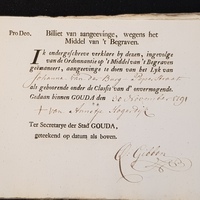 Pro Deo.
Billiet van aangeevinge, wegens het
Middel van 't Begraven.
Ik ondergeschreve verklare by deezen, ingevolge
van de Ordonnantie op 't Middel van 't Begraven
geëmaneert, aangeevinge te doen van het Lyk van
Johanna van der Burg
als gehoorende onder de Classis van d' onvermogende.
Gedaan binnen GOUDA den 30 November 1791
Ter Secretarye der Stad GOUDA,
geteekend op datum als boven.